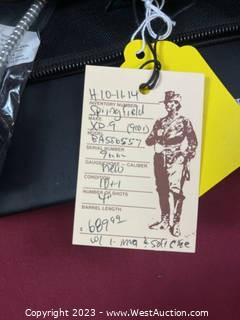 H10-1614
INVENTORY NUMBER
Springfield
MAKE
XD-9 (9801)
MODEL
BA550557
SERIAL NUMBER
9mm
GAUGE - CALIBER
New
CONDITION
10+1
NUMBER OF SHOTS
4"
BARREL LENGTH
$ 689.92
w/ 1- mag & soft case
Copyright 2023 - www.WestAuction.com